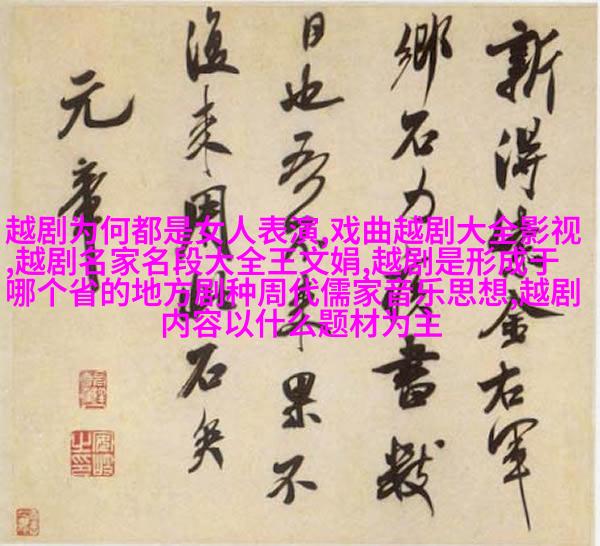 越剧为何都是女人表演,戏曲越剧大全影视
,越剧名家名段大全王文娟,越剧是形成于
哪个省的地方剧种周代儒家音乐思想,越剧
内容以什么题材为主
新得紫金右軍
鄉石力疾書數
日也吾來果不
復來用此石矣
元章